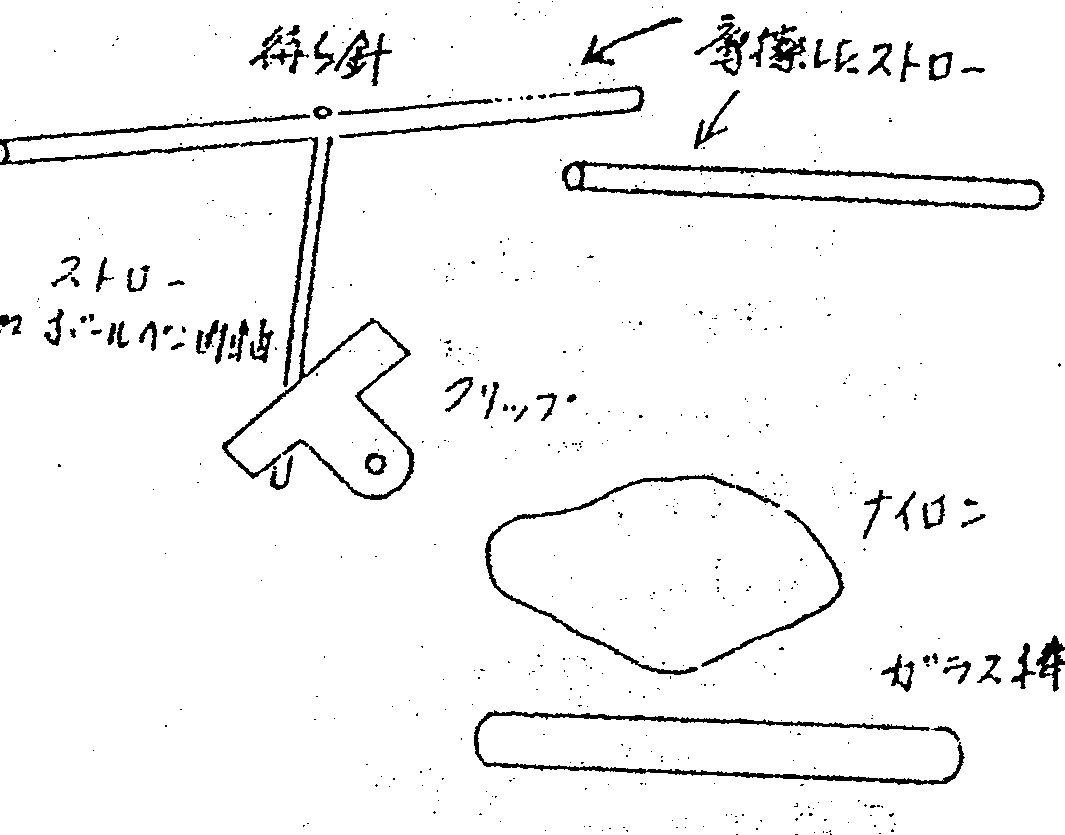 待ち針
摩擦したストロー
ストロー
ボールペンの軸
クリップ
ナイロン
ガラス棒